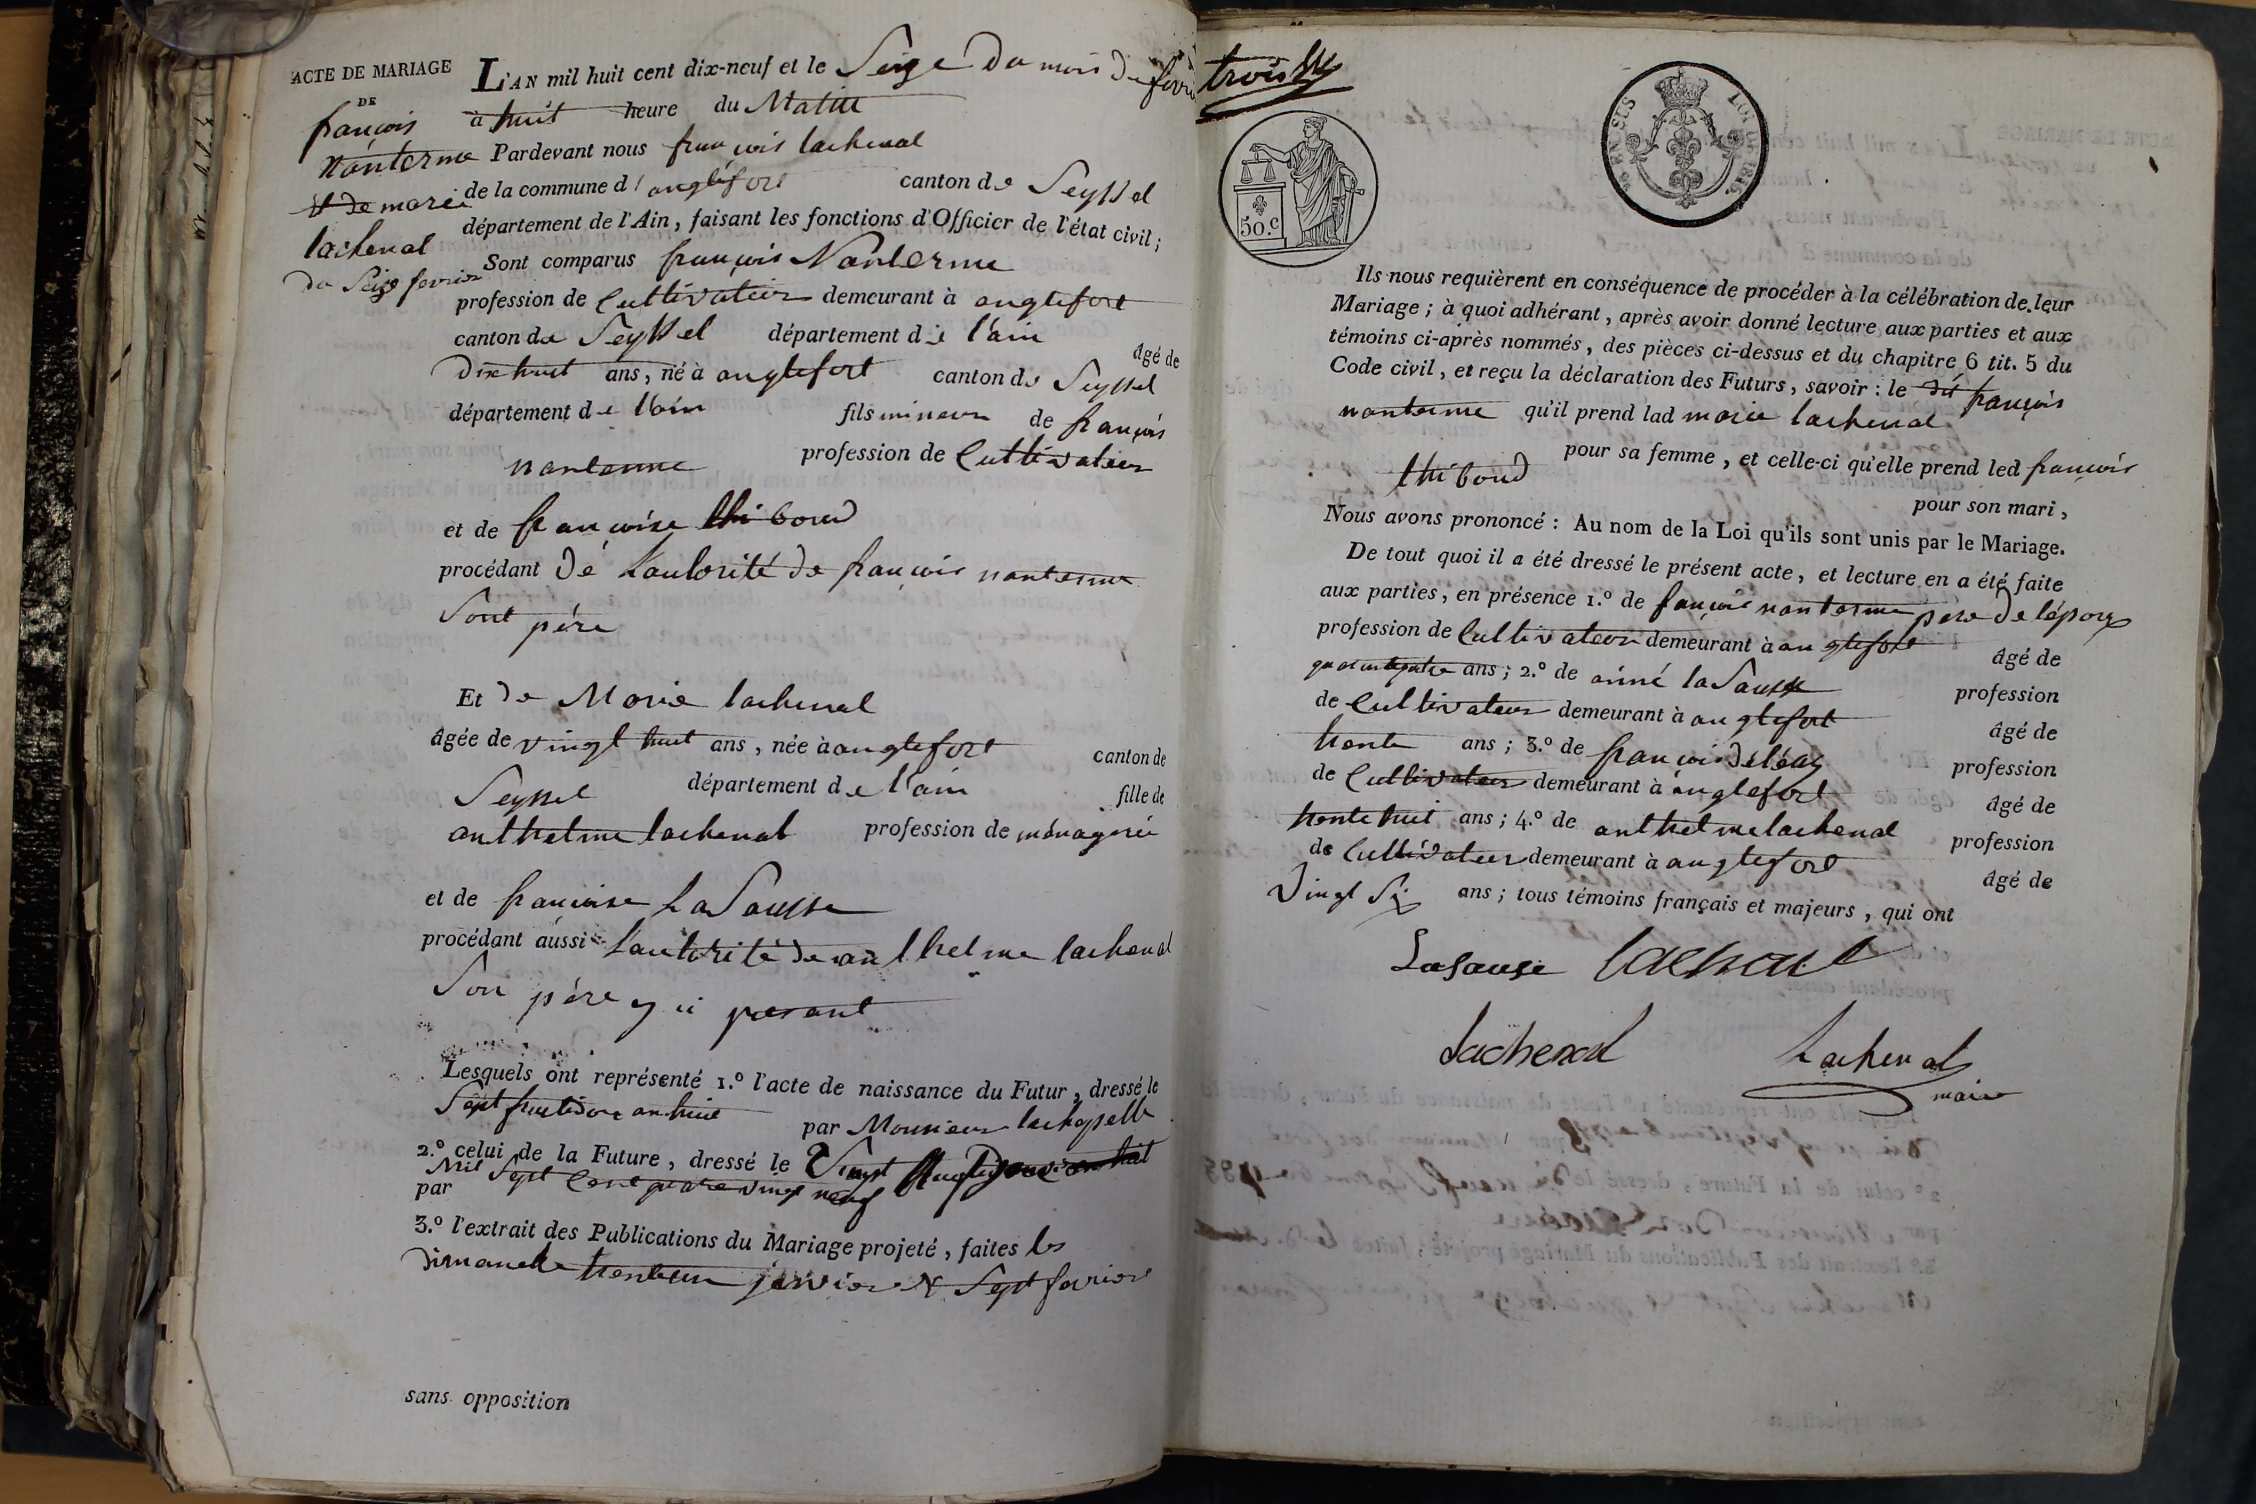 ACTE DE MARIAGE
DE
françois
nanterme
et de marie
lachenal
du Seize fevrier
L'AN mil huit cent dix-neuf et le Seize Du mois de fevrier
à huit heure du Matin
Pardevant nous françois lachenal
de la commune d'anglefort canton de Seyssel
département de l'Ain, faisant les fonctions d'Officier de l'état civil;
Sont comparus françois Nanterme
profession de Cultivateur demeurant à anglefort
canton de Seyssel département de l'ain âgé de
Dix huit ans, né à anglefort canton de Seyssel
département de l'ain fils mineur de françois
nanterme profession de Cultivateur
et de françoise thiboud
procédant de L'autorité de françois nanterme
Sont père
Et de Marie lachenal
âgée de vingt huit ans, née à anglefort canton de
Seyssel département de l'ain fille de
anthelme lachenal profession de ménagerie
et de françoise La Sausse
procédant aussi L'autorité de anthelme lachenal
Son père y ci presant
Lesquels ont représenté 1.º l'acte de naissance du Futur, dressé le
Sept fructidor an huit par Monsieur
2.º celui de la Future, dressé le Vingt
Mil Sept Cent quatre vingt neuf
par
3.º l'extrait des Publications du Mariage projeté, faites les
dimanche trente un janvier et Sept fevrier
sans opposition
trois
50.c
LOI DE
Ils nous requièrent en conséquence de procéder à la célébration de leur
Mariage; à quoi adhérant, après avoir donné lecture aux parties et aux
témoins ci-après nommés, des pièces ci-dessus et du chapitre 6 tit. 5 du
Code civil, et reçu la déclaration des Futurs, savoir: le dit françois
nanterme qu'il prend lad marie lachenal
pour sa femme, et celle-ci qu'elle prend led françois
thiboud pour son mari,
Nous avons prononcé: Au nom de la Loi qu'ils sont unis par le Mariage.
De tout quoi il a été dressé le présent acte, et lecture en a été faite
aux parties, en présence 1.º de françois nanterme père de l'époux
profession de Cultivateur demeurant à anglefort âgé de
quarantquatre ans; 2.º de aimé la Sausse profession
de Cultivateur demeurant à anglefort âgé de
trente ans; 3.º de françois déléaz profession
de Cultivateur demeurant à anglefort âgé de
trente huit ans; 4.º de anthelme lachenal profession
de Cultivateur demeurant à anglefort âgé de
Vingt Six ans; tous témoins français et majeurs, qui ont
Lasause lachenal
Lachenal Lachenal
maire